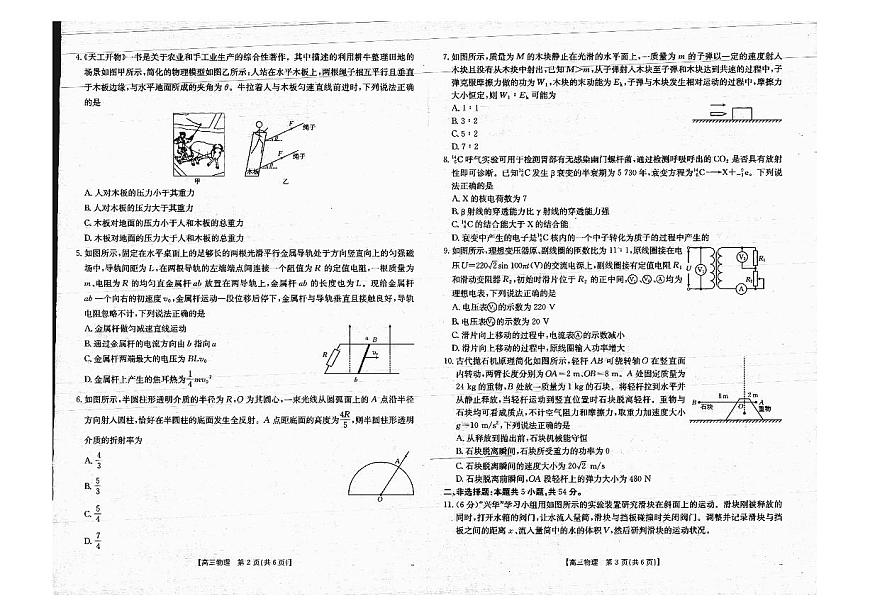 4.《天工开物》一书是关于农业和手工业生产的综合性著作。其中描述的利用耕牛整理田地的
场景如图甲所示,简化的物理模型如图乙所示:人站在水平木板上,两根绳子相互平行且垂直
于木板边缘,与水平地面所成的夹角为 θ。牛拉着人与木板匀速直线前进时,下列说法正确
的是
F
绳子
F
绳子
木板
甲
乙
A. 人对木板的压力小于其重力
B. 人对木板的压力大于其重力
C. 木板对地面的压力小于人和木板的总重力
D. 木板对地面的压力大于人和木板的总重力
5. 如图所示,固定在水平桌面上的足够长的两根光滑平行金属导轨处于方向竖直向上的匀强磁
场中,导轨间距为 L,在两根导轨的左端端点间连接一个阻值为 R 的定值电阻,一根质量为
m、电阻为 R 的均匀直金属杆 ab 放置在两导轨上,金属杆 ab 的长度也为 L。现给金属杆
ab 一个向右的初速度 v₀,金属杆运动一段位移后停下,金属杆与导轨垂直且接触良好,导轨
电阻忽略不计,下列说法正确的是
A. 金属杆做匀减速直线运动
B. 通过金属杆的电流方向由 b 指向 a
C. 金属杆两端最大的电压为 BLv₀
D. 金属杆上产生的焦耳热为 1/4 mv₀²
R
a
B
v₀
b
6. 如图所示,半圆柱形透明介质的半径为 R,O 为其圆心,一束光线从圆弧面上的 A 点沿半径
方向射入圆柱,恰好在半圆柱的底面发生全反射。A 点距底面的高度为 4R/5,则半圆柱形透明
介质的折射率为
A. 4/3
B. 5/3
C. 5/4
D. 7/4
A
O
【高三物理 第 2 页(共 6 页)】
7. 如图所示,质量为 M 的木块静止在光滑的水平面上,一质量为 m 的子弹以一定的速度射入
木块且没有从木块中射出,已知 M>m,从子弹射入木块至子弹和木块达到共速的过程中,子
弹克服摩擦力做的功为 W₁,木块的末动能为 Eₖ,子弹与木块发生相对运动的过程中,摩擦力
大小恒定,则 W₁∶Eₖ 可能为
A. 1∶1
B. 3∶2
C. 5∶2
D. 7∶2
8. ¹⁴₆C 呼气实验可用于检测胃部有无感染幽门螺杆菌,通过检测呼吸呼出的 CO₂ 是否具有放射
性即可诊断。已知 ¹⁴₆C 发生 β 衰变的半衰期为 5 730 年,衰变方程为 ¹⁴₆C—→X+⁰₋₁e。下列说
法正确的是
A. X 的核电荷数为 7
B. β 射线的穿透能力比 γ 射线的穿透能力强
C. ¹⁴₆C 的结合能大于 X 的结合能
D. 衰变中产生的电子是 ¹⁴₆C 核内的一个中子转化为质子的过程中产生的
9. 如图所示,理想变压器原、副线圈的匝数比为 11∶1,原线圈接在电
压 U=220√2 sin 100πt(V)的交流电源上,副线圈接有定值电阻 R₁
和滑动变阻器 R₂,初始时滑片位于 R₂ 的正中间,V₁、V₂、A均为
理想电表,下列说法正确的是
U
V₁
V₂
R₁
R₂
A
A. 电压表V₁的示数为 220 V
B. 电压表V₂的示数为 20 V
C. 滑片向上移动的过程中,电流表A的示数减小
D. 滑片向上移动的过程中,原线圈输入功率增大
10. 古代抛石机原理简化如图所示,轻杆 AB 可绕转轴 O 在竖直面
内转动,两臂长度分别为 OA=2 m、OB=8 m。A 处固定质量为
24 kg 的重物,B 处放一质量为 1 kg 的石块。将轻杆拉到水平并
从静止释放,当轻杆运动到竖直位置时石块脱离轻杆。重物与
石块均可看成质点,不计空气阻力和摩擦力,取重力加速度大小
g=10 m/s²,下列说法正确的是
B
石块
8 m
2 m
A
重物
O
A. 从释放到抛出前,石块机械能守恒
B. 石块脱离瞬间,石块所受重力的功率为 0
C. 石块脱离瞬间的速度大小为 20√2 m/s
D. 石块脱离前瞬间,OA 段轻杆上的弹力大小为 480 N
二、非选择题:本题共 5 小题,共 54 分。
11. (6 分)“兴华”学习小组用如图所示的实验装置研究滑块在斜面上的运动。滑块刚被释放的
同时,打开水箱的阀门,让水流入量筒,滑块与挡板碰撞时关闭阀门。调整并记录滑块与挡
板之间的距离 x、流入量筒中的水的体积 V,然后研判滑块的运动状况。
【高三物理 第 3 页(共 6 页)】